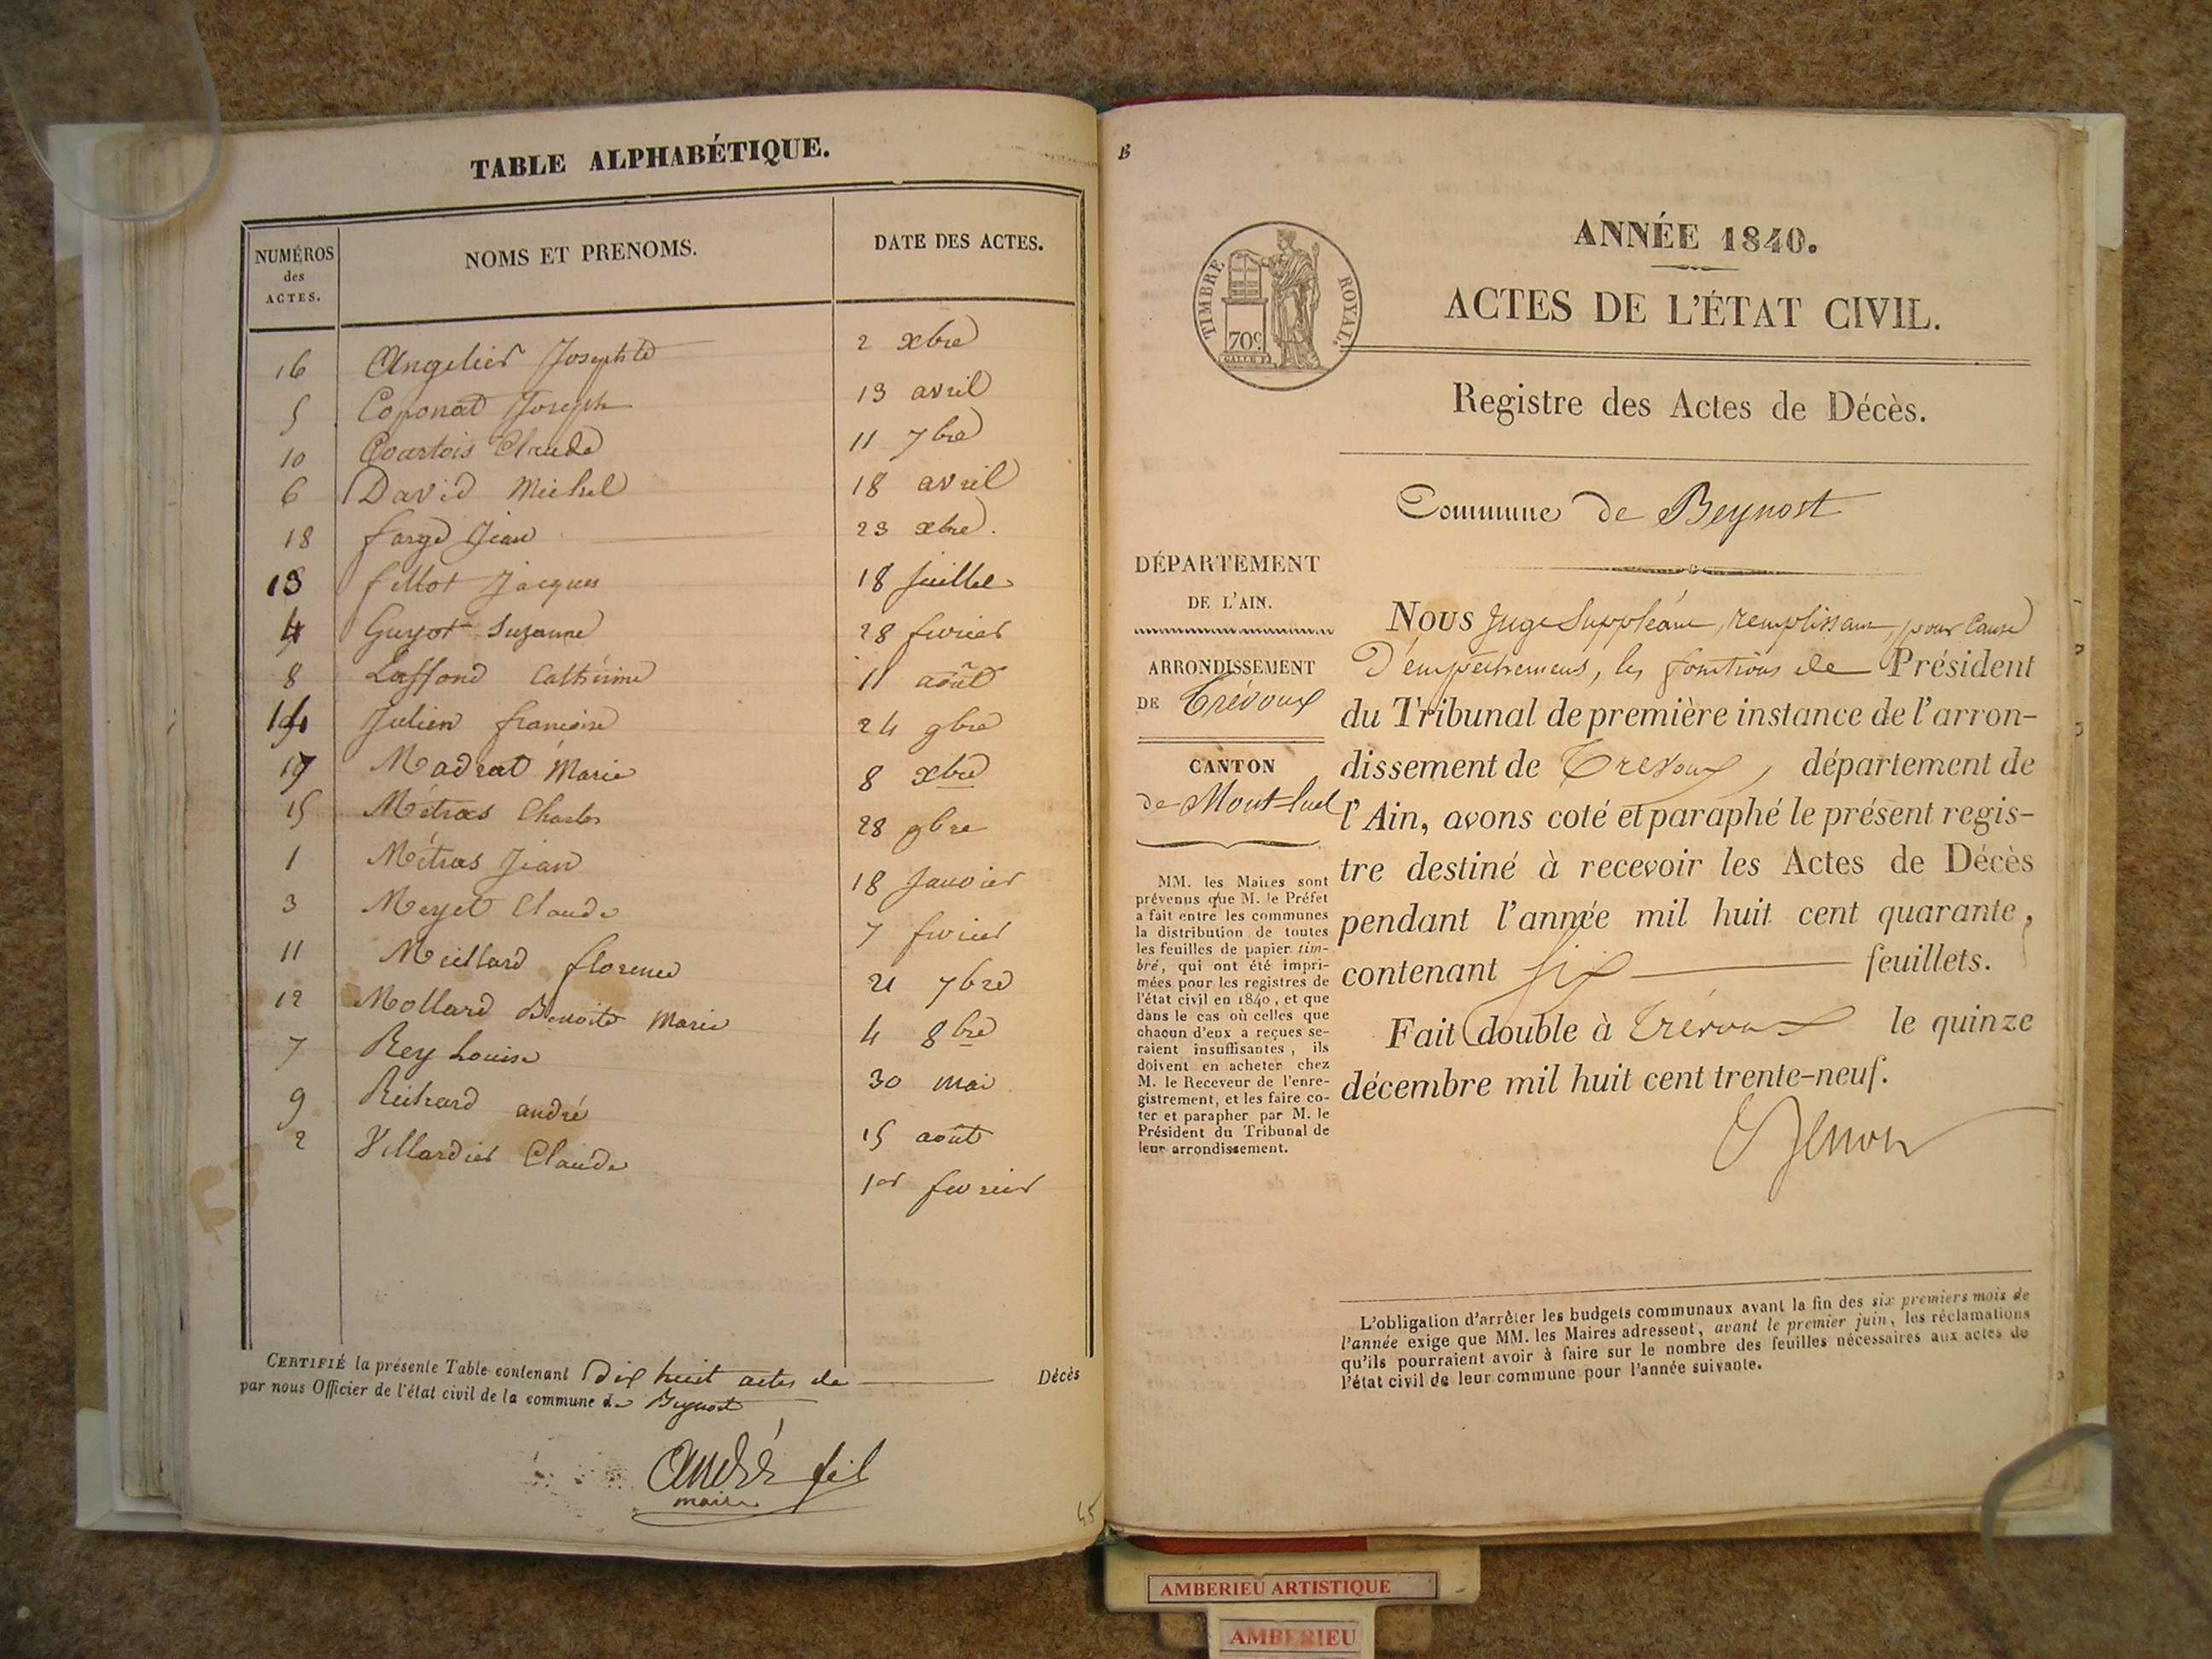 TABLE ALPHABÉTIQUE.
NUMÉROS des ACTES.
NOMS ET PRENOMS.
DATE DES ACTES.
16 Angelier Josephte 2 xbre
5 Coponat Joseph 13 avril
10 Courtois Claude 11 7bre
6 David Michel 18 avril
18 farge Jean 23 xbre.
13 fillot Jacques 18 Juillet
4 Guyot Suzanne 28 fevrier
8 Laffond Cathérine 11 août
14 Julien françoise 24 9bre
17 Madrat Marie 8 xbre
15 Métras Charles 28 9bre
1 Métras Jean 18 Janvier
3 Meyet Claude 7 fevrier
11 Miellard florence 21 7bre
12 Mollard Benoite Marie 4 8bre
7 Rey Louise 30 mai
9 Richard andré 15 août
2 Villardier Claude 1er fevrier
CERTIFIÉ la présente Table contenant Dix huit actes de Décès
par nous Officier de l'état civil de la commune de Beynost
André fils
maire
45
B
TIMBRE ROYAL.
70c
ANNÉE 1840.
ACTES DE L'ÉTAT CIVIL.
Registre des Actes de Décès.
Commune de Beynost
DÉPARTEMENT
DE L'AIN.
ARRONDISSEMENT
DE Trévoux
CANTON
de Mont-luel
MM. les Maires sont
prévenus que M. le Préfet
a fait entre les communes
la distribution de toutes
les feuilles de papier tim-
bré, qui ont été impri-
mées pour les registres de
l'état civil en 1840, et que
dans le cas où celles que
chacun d'eux a reçues se-
raient insuffisantes, ils
doivent en acheter chez
M. le Receveur de l'enre-
gistrement, et les faire co-
ter et parapher par M. le
Président du Tribunal de
leur arrondissement.
NOUS Juge Suppléant, remplissant, pour Cause
D'empêchement, les fonctions de Président
du Tribunal de première instance de l'arron-
dissement de Trevoux, département de
l'Ain, avons coté et paraphé le présent regis-
tre destiné à recevoir les Actes de Décès
pendant l'année mil huit cent quarante,
contenant six feuillets.
Fait double à Trévoux le quinze
décembre mil huit cent trente-neuf.
L'obligation d'arrêter les budgets communaux avant la fin des six premiers mois de
l'année exige que MM. les Maires adressent, avant le premier juin, les réclamations
qu'ils pourraient avoir à faire sur le nombre des feuilles nécessaires aux actes de
l'état civil de leur commune pour l'année suivante.
AMBERIEU ARTISTIQUE
AMBERIEU